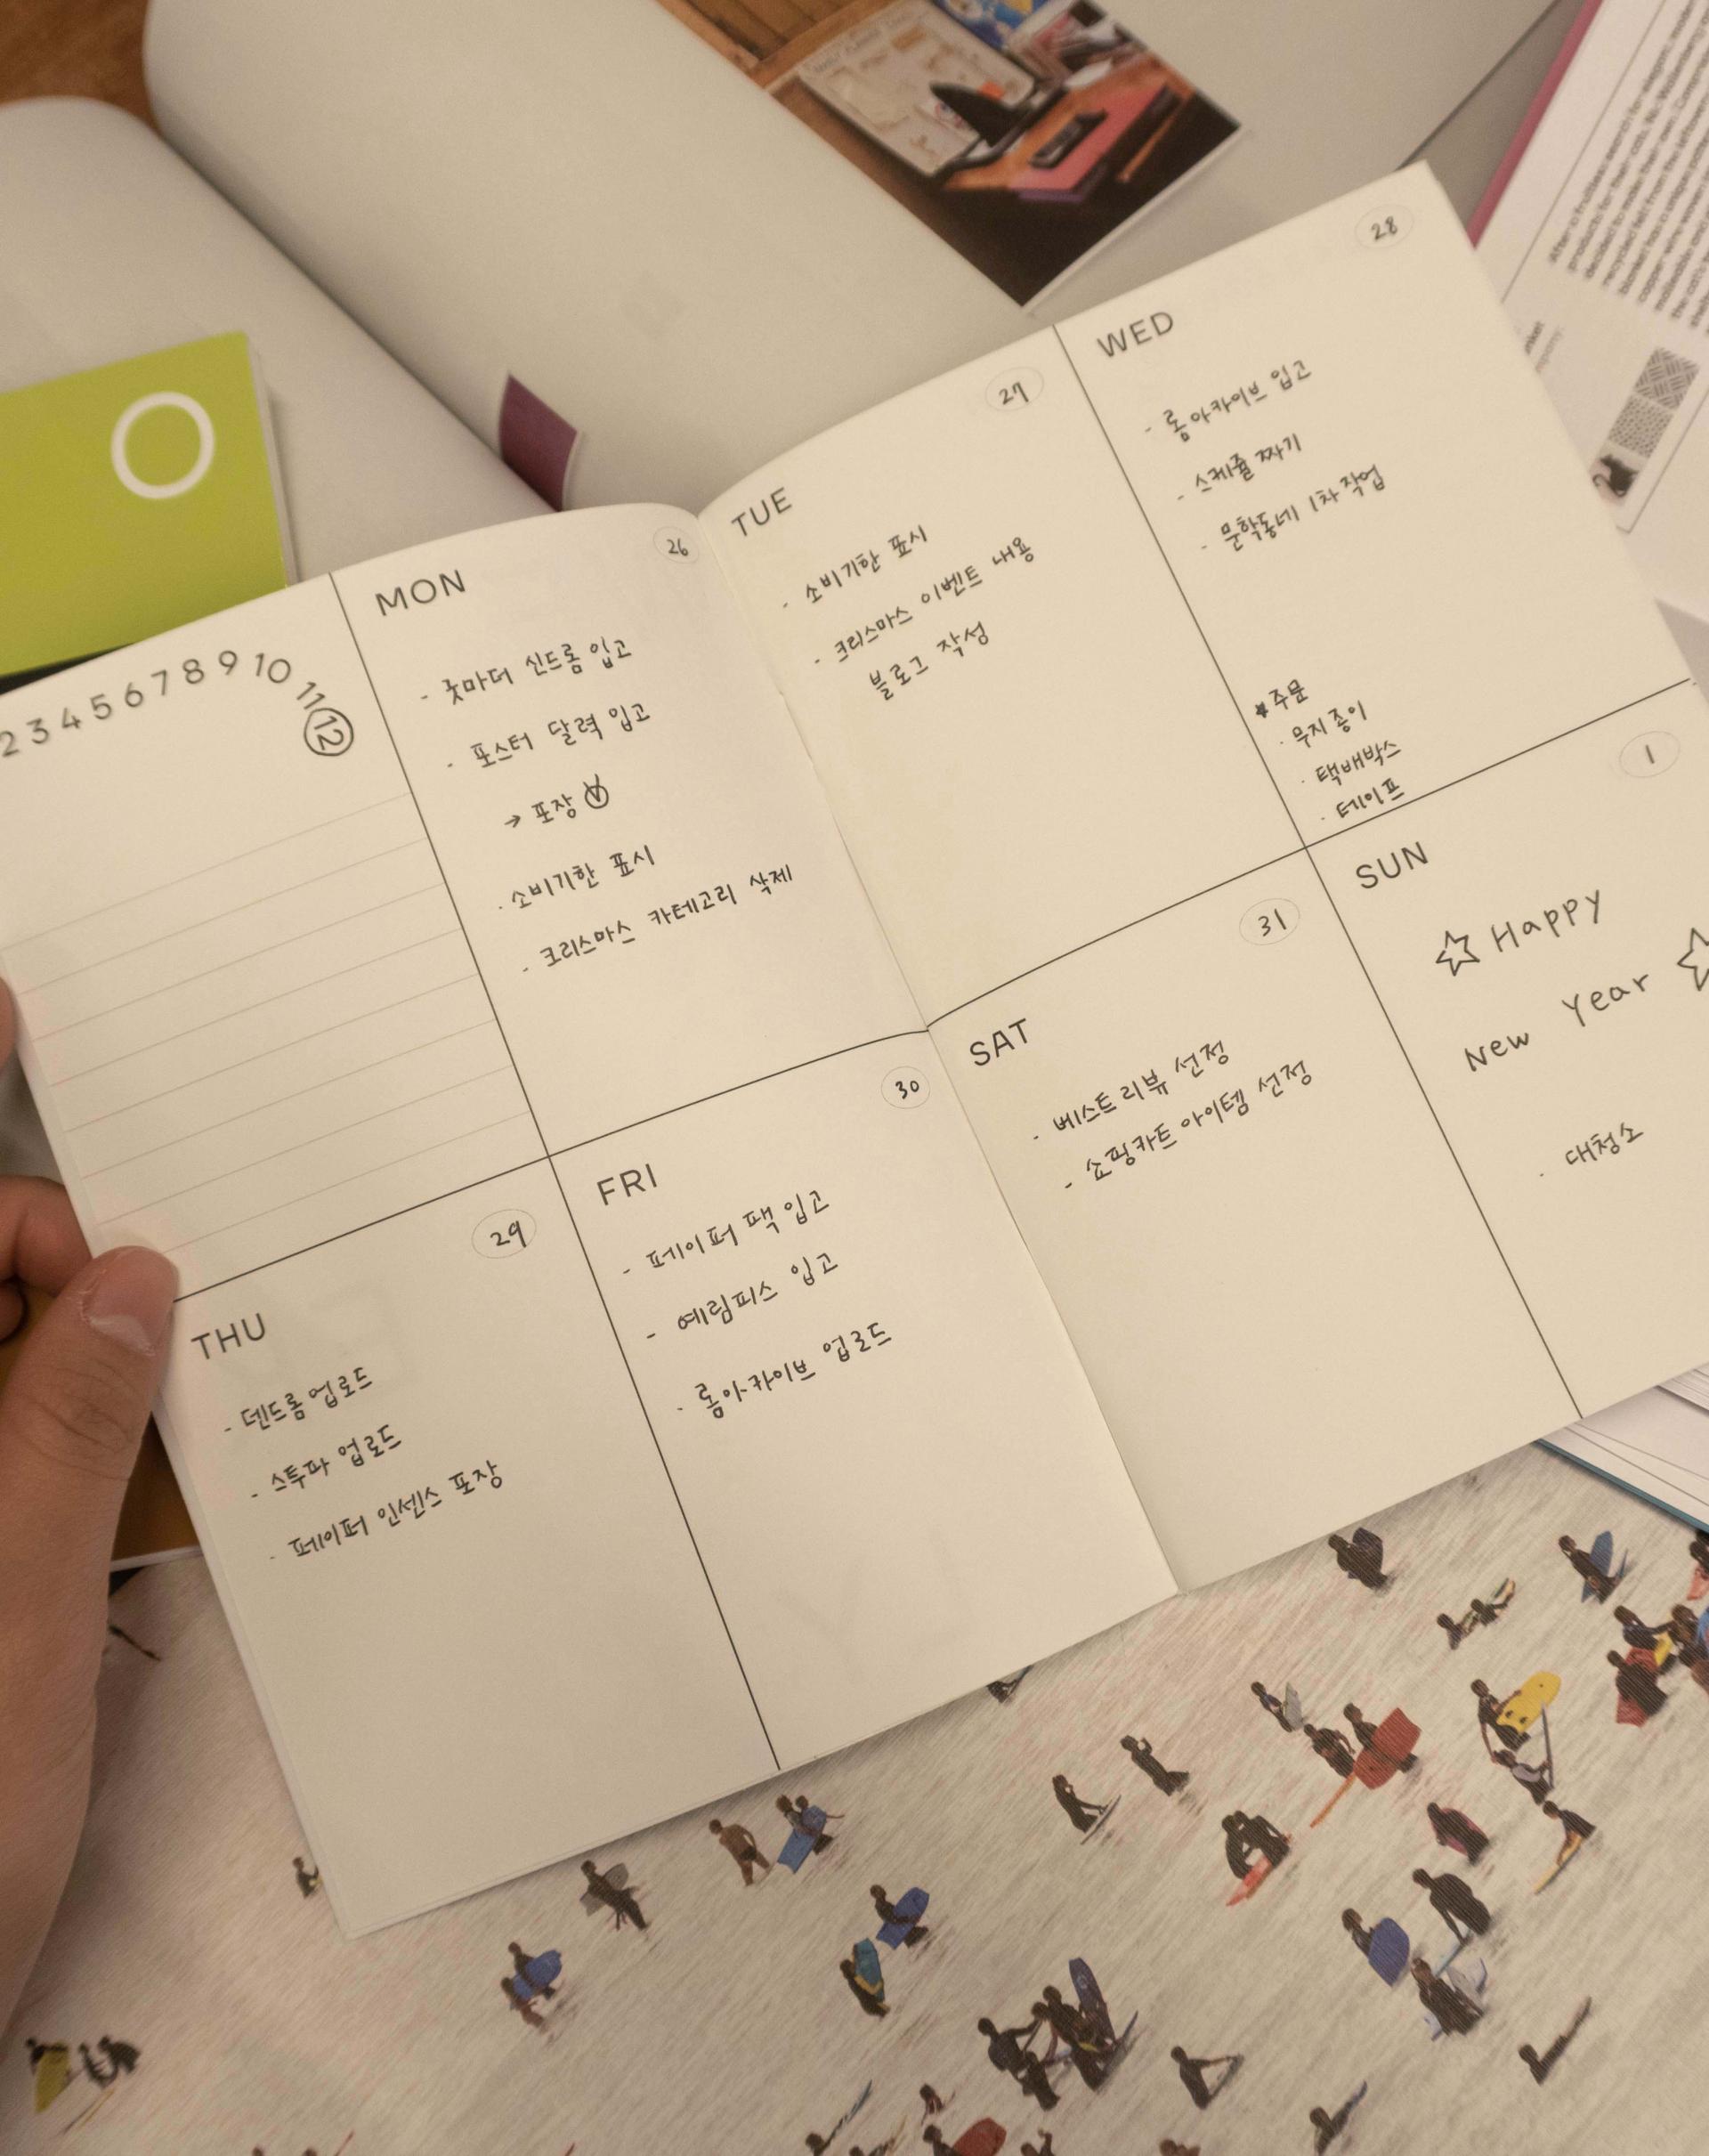 2 3 4 5 6 7 8 9 10 11 12
MON
26
- 굿마더 신드롬 입고
- 포스터 달력 입고
→ 포장
- 소비기한 표시
- 크리스마스 카테고리 삭제
TUE
27
- 소비기한 표시
- 크리스마스 이벤트 내용
블로그 작성
WED
28
- 롬아카이브 입고
- 스케쥴 짜기
- 문학동네 1차 작업
★ 주문
· 무지 종이
· 택배박스
· 테이프
THU
29
- 덴드롬 업로드
- 스투파 업로드
- 페이퍼 인센스 포장
FRI
30
- 페이퍼 팩 입고
- 예림피스 입고
- 롬아카이브 업로드
SAT
31
- 베스트 리뷰 선정
- 쇼핑카트 아이템 선정
SUN
1
☆ Happy
New Year ☆
- 대청소